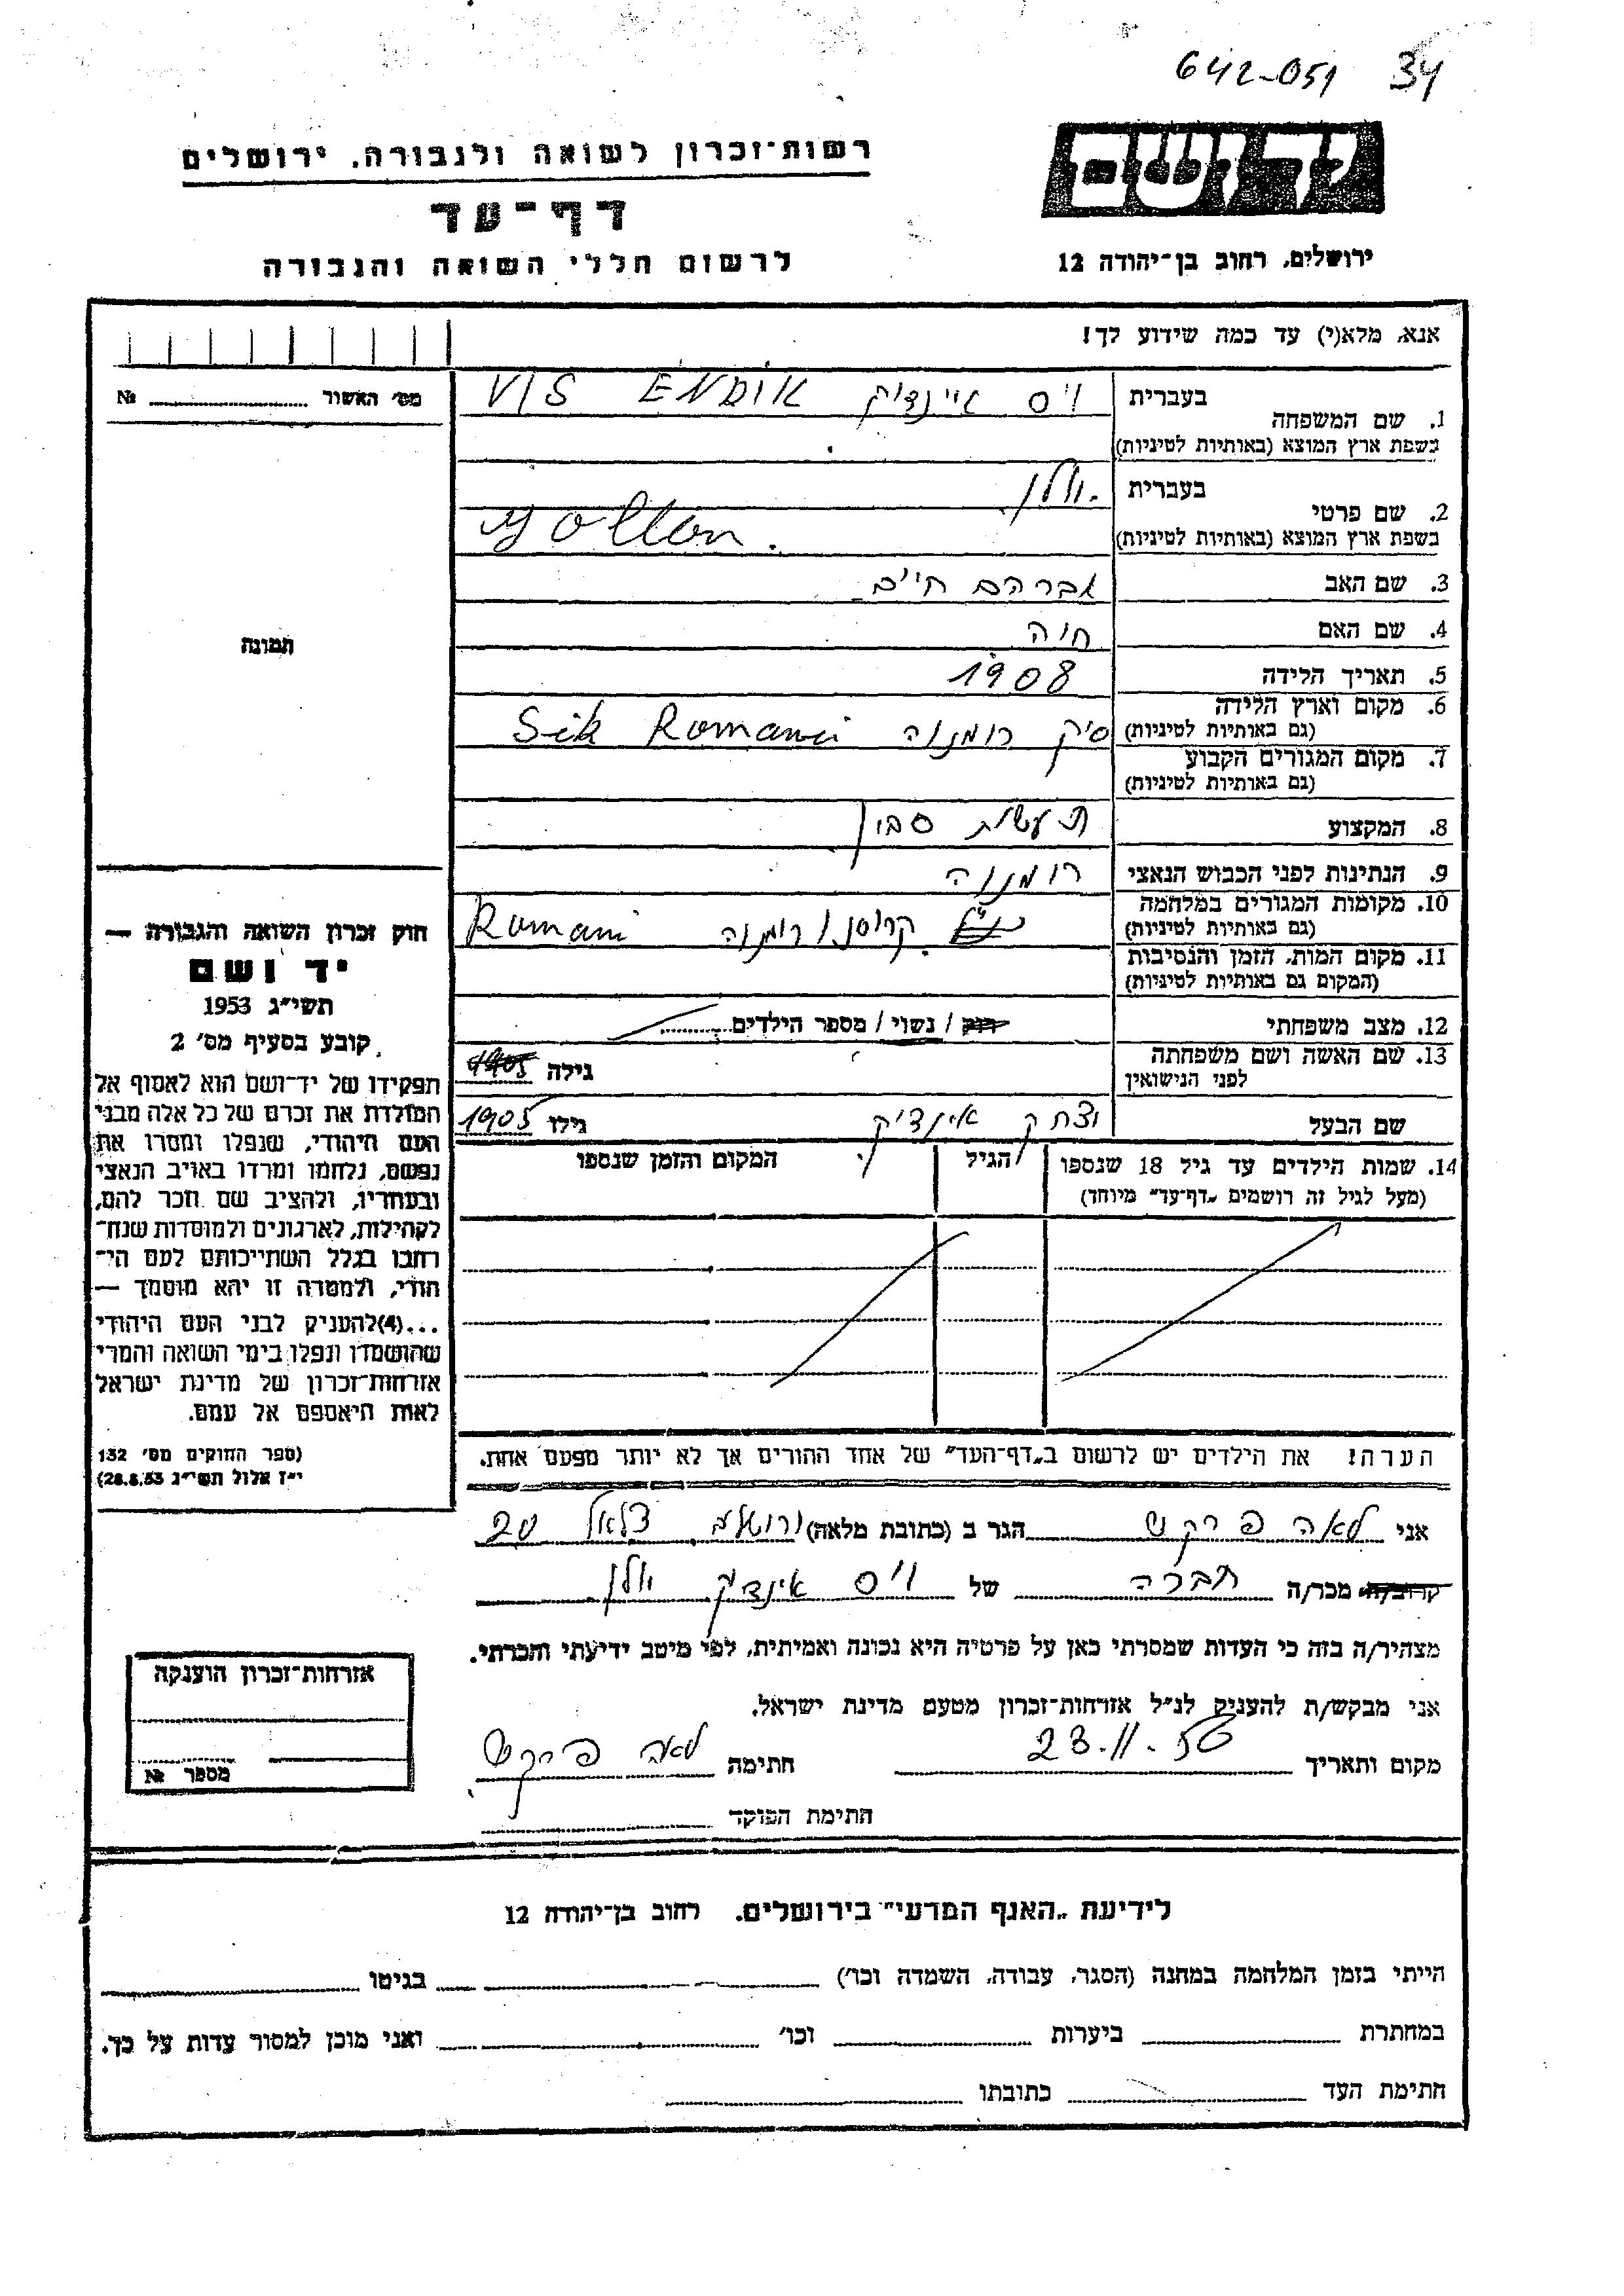 642-051 34
יד ושם
רשות-זכרון לשואה ולגבורה, ירושלים
דף-עד
לרשום חללי השואה והגבורה
ירושלים, רחוב בן-יהודה 12
אנא, מלא(י) עד כמה שידוע לך!
מס' האשור № ........
1. שם המשפחה
בעברית ויס איינדיק VIS ENDIK
בשפת ארץ המוצא (באותיות לטיניות)
2. שם פרטי
בעברית
בשפת ארץ המוצא (באותיות לטיניות)
3. שם האב אברהם חיים
4. שם האם חוה
5. תאריך הלידה 1908
6. מקום וארץ הלידה
(גם באותיות לטיניות) סיק רומניה Sik Romani
7. מקום המגורים הקבוע
(גם באותיות לטיניות)
8. המקצוע תעשית סבון
9. הנתינות לפני הכבוש הנאצי רומניה
10. מקומות המגורים במלחמה
(גם באותיות לטיניות) רומניה Romani
11. מקום המות, הזמן והנסיבות
(המקום גם באותיות לטיניות)
12. מצב משפחתי רווק / נשוי / מספר הילדים........
13. שם האשה ושם משפחתה
לפני הנישואין גילה 1905
שם הבעל יצחק אינדיק גילו 1905
14. שמות הילדים עד גיל 18 שנספו הגיל המקום והזמן שנספו
(מעל לגיל זה רושמים „דף-עד" מיוחד)
הערה! את הילדים יש לרשום ב„דף-העד" של אחד ההורים אך לא יותר מפעם אחת.
תמונה
חוק זכרון השואה והגבורה —
יד ושם
תשי"ג 1953
קובע בסעיף מס' 2
תפקידו של יד-ושם הוא לאסוף אל
המולדת את זכרם של כל אלה מבני
העם היהודי, שנפלו ומסרו את
נפשם, נלחמו ומרדו באויב הנאצי
ובעוזריו, ולהציב שם וזכר להם,
לקהילות, לארגונים ולמוסדות שנח-
רבו בגלל השתייכותם לעם הי-
הודי, ולמטרה זו יהא מוסמך —
...(4) להעניק לבני העם היהודי
שהושמדו ונפלו בימי השואה והמרי
אזרחות-זכרון של מדינת ישראל
לאות היאספם אל עמם.
(ספר החוקים מס' 132
י"ז אלול תשי"ג 28.8.53)
אני לאה פרקש הגר ב (כתובת מלאה) 20
קרוב/ה מכר/ה חברה של ויס אינדיק
מצהיר/ה בזה כי העדות שמסרתי כאן על פרטיה היא נכונה ואמיתית, לפי מיטב ידיעתי והכרתי.
אני מבקש/ת להעניק לנ"ל אזרחות-זכרון מטעם מדינת ישראל.
מקום ותאריך 23.11.56 חתימה לאה פרקש
חתימת הפוקד
אזרחות-זכרון הוענקה
מספר №
לידיעת „האגף המדעי" בירושלים, רחוב בן-יהודה 12
הייתי בזמן המלחמה במחנה (הסגר, עבודה, השמדה וכו') בגיטו
במחתרת ביערות וכו' ואני מוכן למסור עדות על כך.
חתימת העד כתובתו